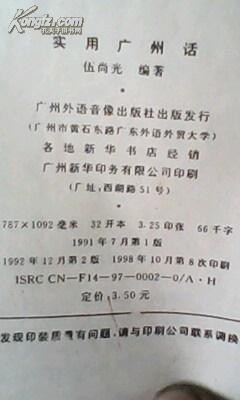 实用广州话
伍尚光 编著
广州外语音像出版社出版发行
(广州市黄石东路广东外语外贸大学)
各地新华书店经销
广州新华印务有限公司印刷
(厂址:西湖路51号)
787×1092毫米 32开本 3.25印张 66千字
1991年7月第1版
1992年12月第2版 1998年10月第8次印刷
ISRC CN—F14—97—0002—0/A·H
定价:3.50元
发现印装质量有问题,请与印刷公司联系调换